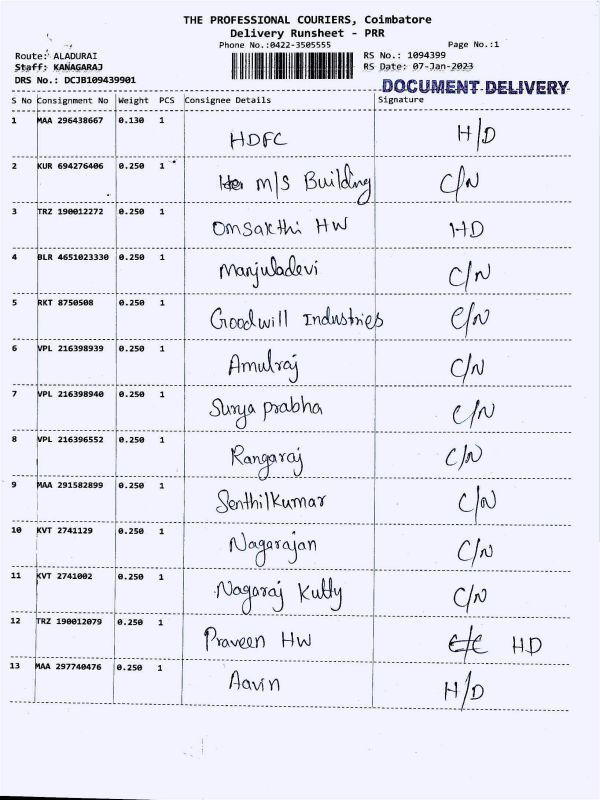 THE PROFESSIONAL COURIERS, Coimbatore
Delivery Runsheet - PRR
Phone No.:0422-3505555 Page No.:1
Route: ALADURAI RS No.: 1094399
Staff: KANAGARAJ RS Date: 07-Jan-2023
DRS No.: DCJB109439901 DOCUMENT DELIVERY
S No Consignment No Weight PCS Consignee Details Signature
1 MAA 296438667 0.130 1 HDFC H/D
2 KUR 694276406 0.250 1 M/S Building C/N
3 TRZ 190012272 0.250 1 Omsakthi HW HD
4 BLR 4651023330 0.250 1 Manjuladevi C/N
5 RKT 8750508 0.250 1 Goodwill Industries C/N
6 VPL 216398939 0.250 1 Amulraj C/N
7 VPL 216398940 0.250 1 Surya prabha C/N
8 VPL 216396552 0.250 1 Rangaraj C/N
9 MAA 291582899 0.250 1 Senthilkumar C/N
10 KVT 2741129 0.250 1 Nagarajan C/N
11 KVT 2741002 0.250 1 Nagaraj Kutty C/N
12 TRZ 190012079 0.250 1 Praveen HW HD
13 MAA 297740476 0.250 1 Aavin H/D